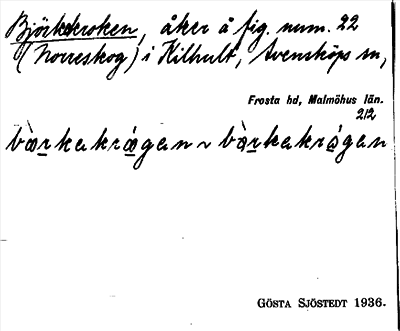 Björkekroken, åker å fig. num. 22
(Norreskog) i Kilhult, Svensköps sn,
Frosta hd, Malmöhus län.
212
bàrkakrågan ~ bàrkakrågan
GÖSTA SJÖSTEDT 1936.